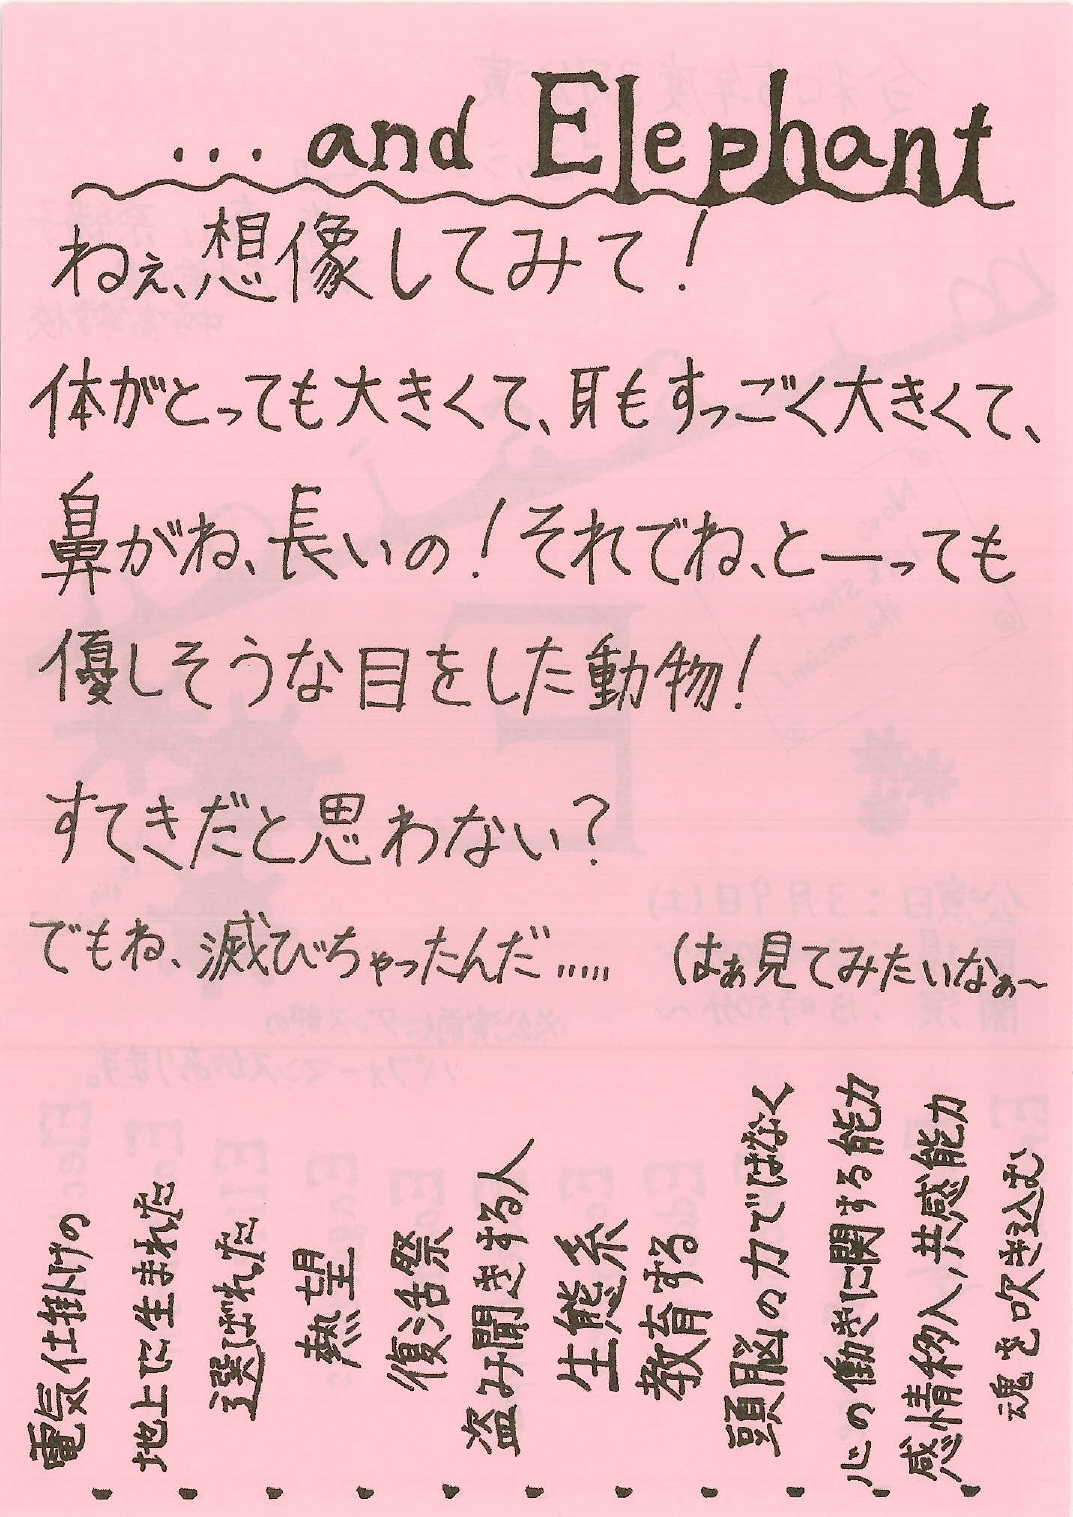 ... and Elephant
ねぇ、想像してみて!
体がとっても大きくて、耳もすっごく大きくて、
鼻がね、長いの!それでね、とーっても
優しそうな目をした動物!
すてきだと思わない?
でもね、滅びちゃったんだ…… (はぁ見てみたいなぁ〜
・電気仕掛けの
・地上に生まれた
・選ばれた
・熱望
・復活祭
・盗み聞きする人
・生態系
・教育する
・頭脳の力ではなく
・心の働きに関する能力
・感情移入,共感能力
魂を吹き込む